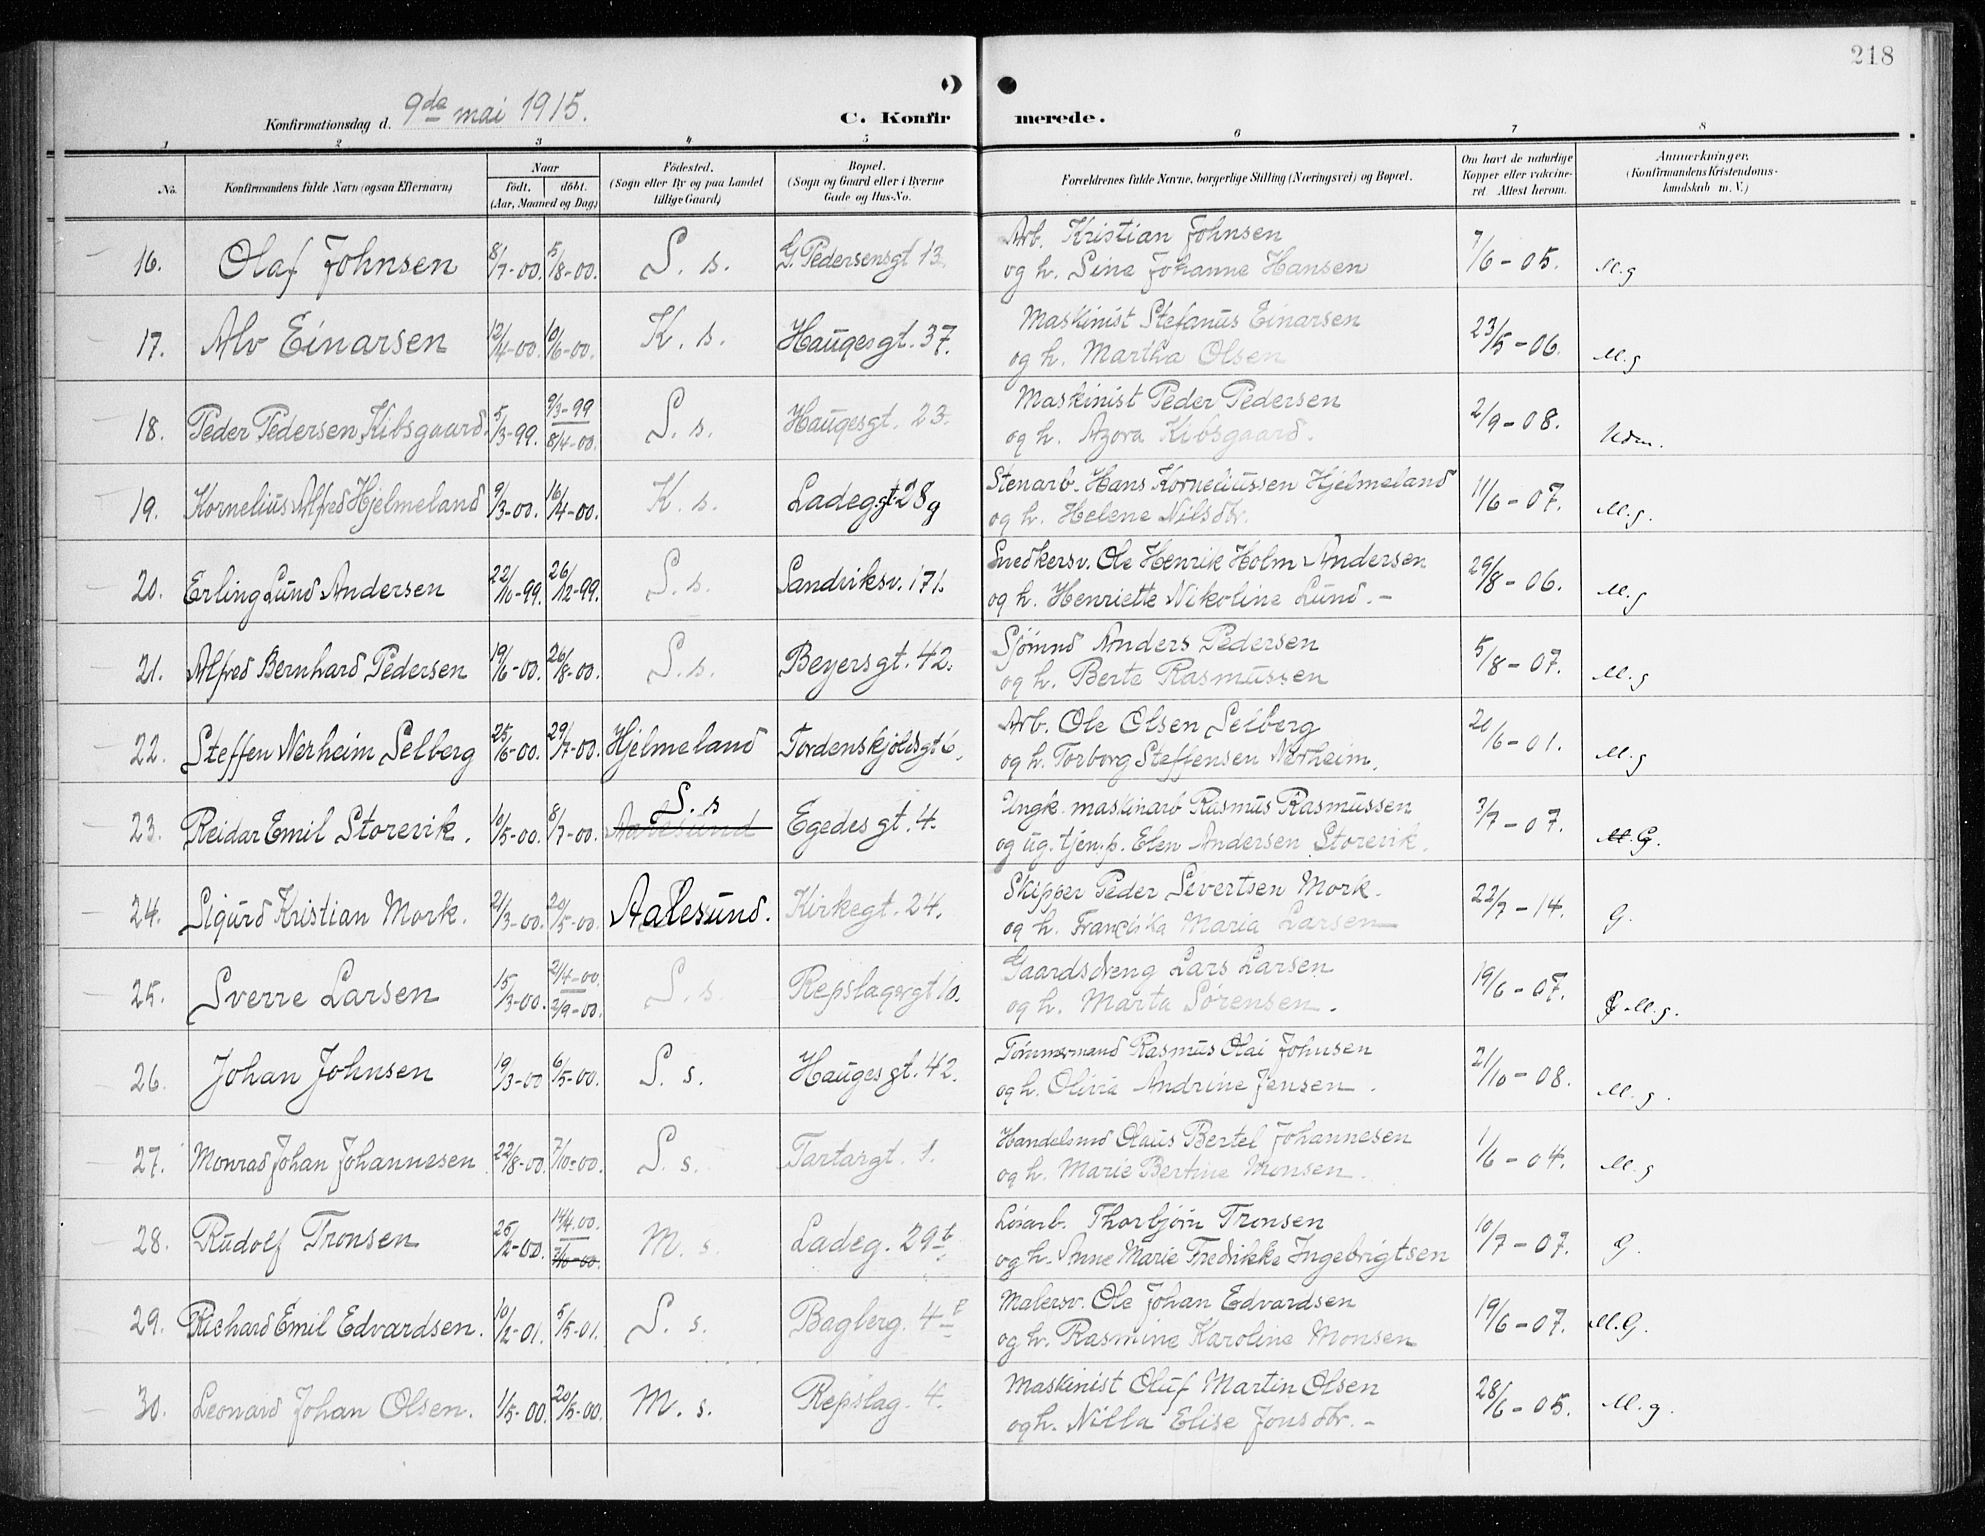 218
Konfirmationsdag d. 9de mai 1915.
C. Konfir merede.
1 2 3 4 5 6 7 8
No. Konfirmandens fulde Navn (ogsaa Efternavn) Naar födt. döbt. (Aar, Maaned og Dag) Födested. (Sogn eller By og paa Landet tillige Gaard) Bopæl. (Sogn og Gaard eller i Byerne Gade og Hus-No. Forældrenes fulde Navne, borgerlige Stilling (Næringsvei) og Bopæl. Om havt de naturlige Kopper eller vakcineret Attest herom. Anmerkninger. (Konfirmandens Kristendomskundskab m. V.)
16. Olaf Johnsen 8/7-00. 5/8-00. S. s. G. Pedersensgt 13. Arb. Kristian Johnsen 7/6-05. M.g
og h. Sine Johanne Hansen
17. Alv Einarsen 12/4-00. 10/6-00. K. s. Haugesgt. 37. Maskinist Stefanus Einarsen 23/5-06. M.g
og h. Martha Olsen
18. Peder Pedersen Kibsgaard. 5/3-99. 9/3-99 8/4-00. S. s. Haugesgt. 23. Maskinist Peder Pedersen 2/9-08. Udm.
og h. Azora Kibsgaard.
19. Kornelius Alfred Hjelmeland 9/3-00. 16/4-00. K. s. Ladeg.gt. 28g Stenarb. Hans Korneliussen Hjelmeland 11/6-07. M.g.
og h. Helene Nilsdtr.
20. Erling Lund Andersen 22/10-99. 26/12-99. S. s. Sandviksv. 171. Snedkersv. Ole Henrik Holm Andersen 29/8-06. M.g
og h. Henriette Nikoline Lund. -
21. Alfred Bernhard Pedersen 19/6-00. 26/8-00. S. s. Beyersgt. 42. Sjömnd Anders Pedersen 5/8-07. M.g
og h. Berte Rasmussen
22. Steffen Nerheim Selberg 25/6-00. 29/7-00. Hjelmeland Tordenskjoldsgt 6. Arb. Ole Olsen Selberg 21/6-01. M.g
og h. Torborg Steffensen Nærheim.
23. Reidar Emil Storevik. 10/5-00. 8/7-00. S. s Aalesund Egedesgt. 4. Ungk. maskinarb Rasmus Rasmussen 3/7-07. M.G.
og ug. tjen.p. Elen Andersen Storevik.
24. Sigurd Kristian Mork. 2/3-00. 20/5-00. Aalesund. Kirkegt. 24. Skipper Peder Severtsen Mork. 22/7-14. G.
og h. Franciska Maria Larsen
25. Sverre Larsen 15/3-00. 2/4-00. 2/9-00. S. s. Repslagergt 10. Gaardsdreng Lars Larsen 19/6-07. M.g.
og h. Marta Sørensen.
26. Johan Johnsen 19/3-00 6/5-00. S. s. Haugesgt. 42. Tömmermand Rasmus Olai Johnsen 21/10-08. M.g.
og h. Olivia Andrine Jensen.
27. Monrad Johan Johannesen 22/8-00. 7/10-00. S. s. Tartargt. 1. Handelsmd Olaus Bertel Johannesen 1/6-04. M.g
og h. Marie Bertine Monsen.
28. Rudolf Tronsen 25/2-00. 14/4.00. 7/10-00. M. s. Ladeg. 29b Løsarb. Thorbjörn Tronsen 10/7-07. G.
og h. Anne Marie Fredrikke Ingebrigtsen
29. Richard Emil Edvardsen. 10/2-01. 5/5-01. S. s. Bagberg. 4 Malersv. Ole Johan Edvardsen 19/6-07. M.G.
og h. Rasmine Karoline Monsen
30. Leonard Johan Olsen. 1/5-00. 20/5-00. M. s. Repslag. 4. Maskinist Oluf Martin Olsen 28/6-05. M.g.
og h. Nilla Elise Jonsdtr. -